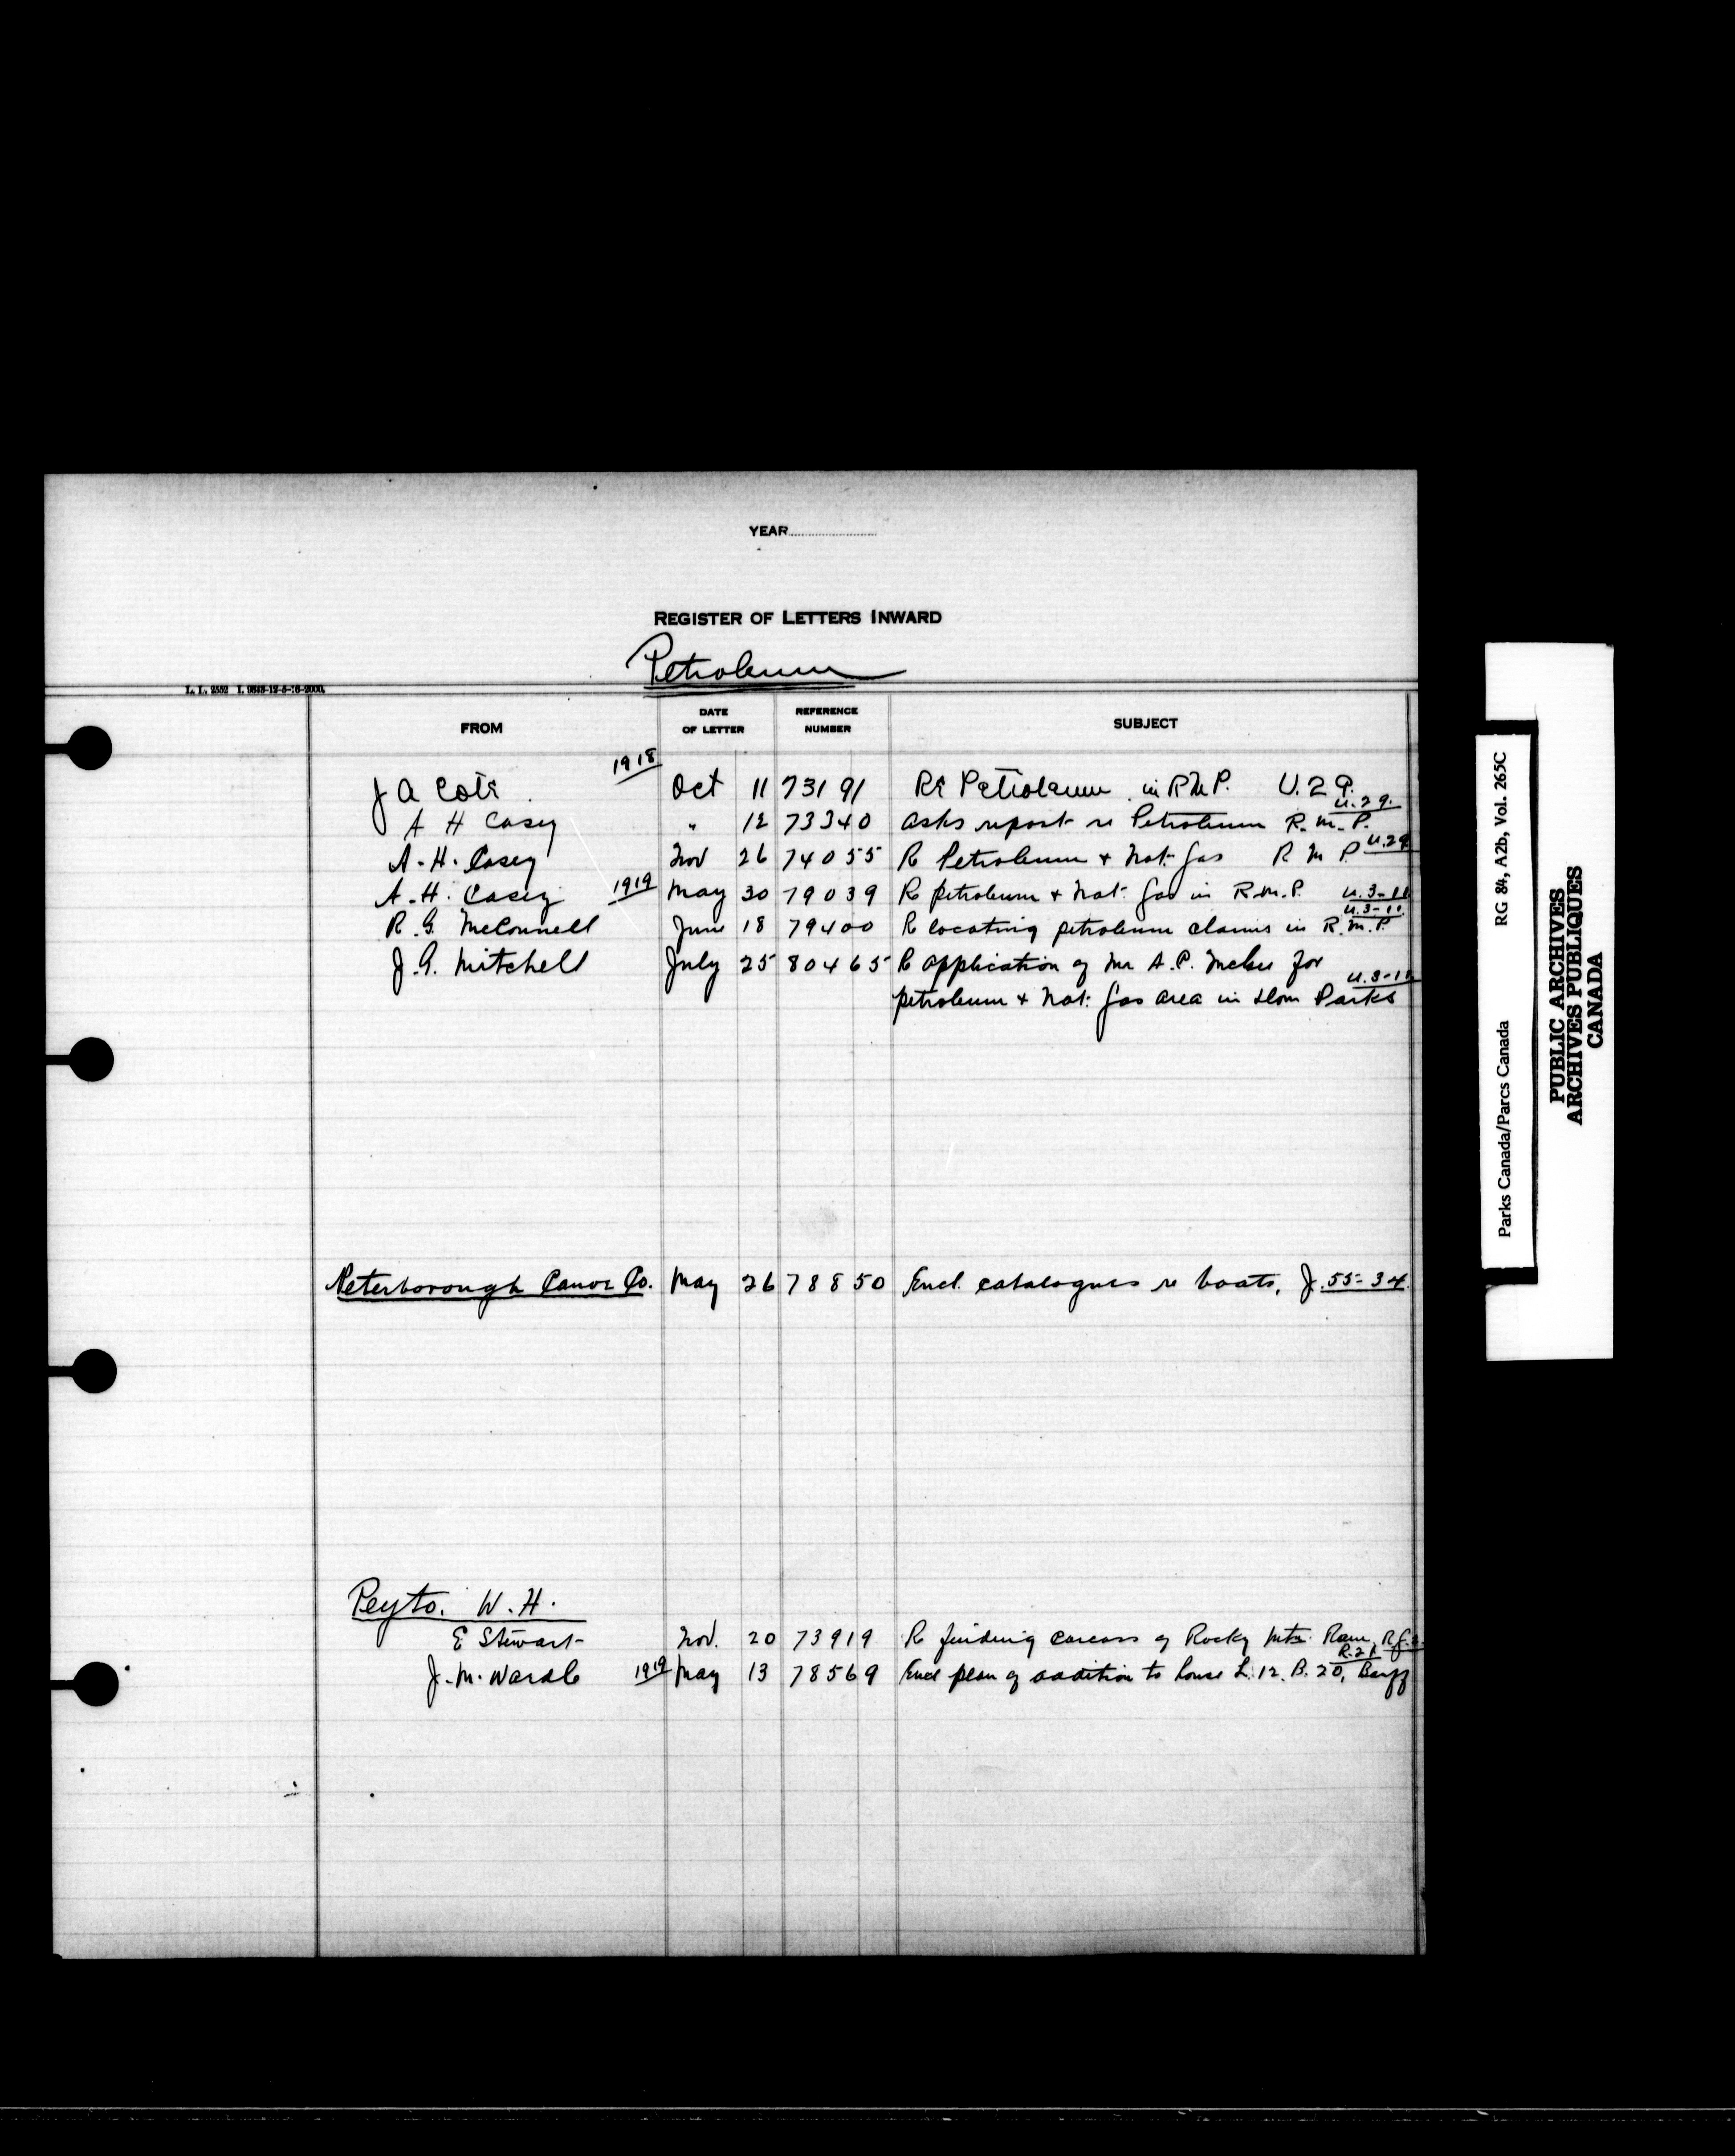 YEAR
REGISTER OF LETTERS INWARD
Petroleum
L. L. 2552 I. 9849-12-5-16-2000.
FROM DATE OF LETTER REFERENCE NUMBER SUBJECT
1918
J A Coté Oct 11 73191 Re Petroleum in R M P. U.29.
A H Casey " 12 73340 Asks report re Petroleum R. M. P. U.29.
A. H. Casey Nov 26 74055 R Petroleum + Nat. Gas R M P U.29
A. H. Casey 1919 May 30 79039 R petroleum + Nat. Gas in R.M.P. U.3-11
R. G. McConnell June 18 79400 R locating petroleum claims in R.M.P. U.3-11.
J. G. Mitchell July 25 80465 R application of Mr A. P. for
petroleum + Nat. Gas area in Dom Parks U.3-11
Peterborough Canoe Co. May 26 78850 Encl. catalogues re boats, J.55-34.
Peyto. W. H.
E Stewart Nov. 20 73919 R finding carcass of Rocky Mtn. Ram,
J. M. Wardle 1919 May 13 78569 Encl plan of addition to house L. 12. B. 20, Banff R.21
Parks Canada/Parcs Canada RG 84, A2b, Vol. 265C
PUBLIC ARCHIVES
ARCHIVES PUBLIQUES
CANADA